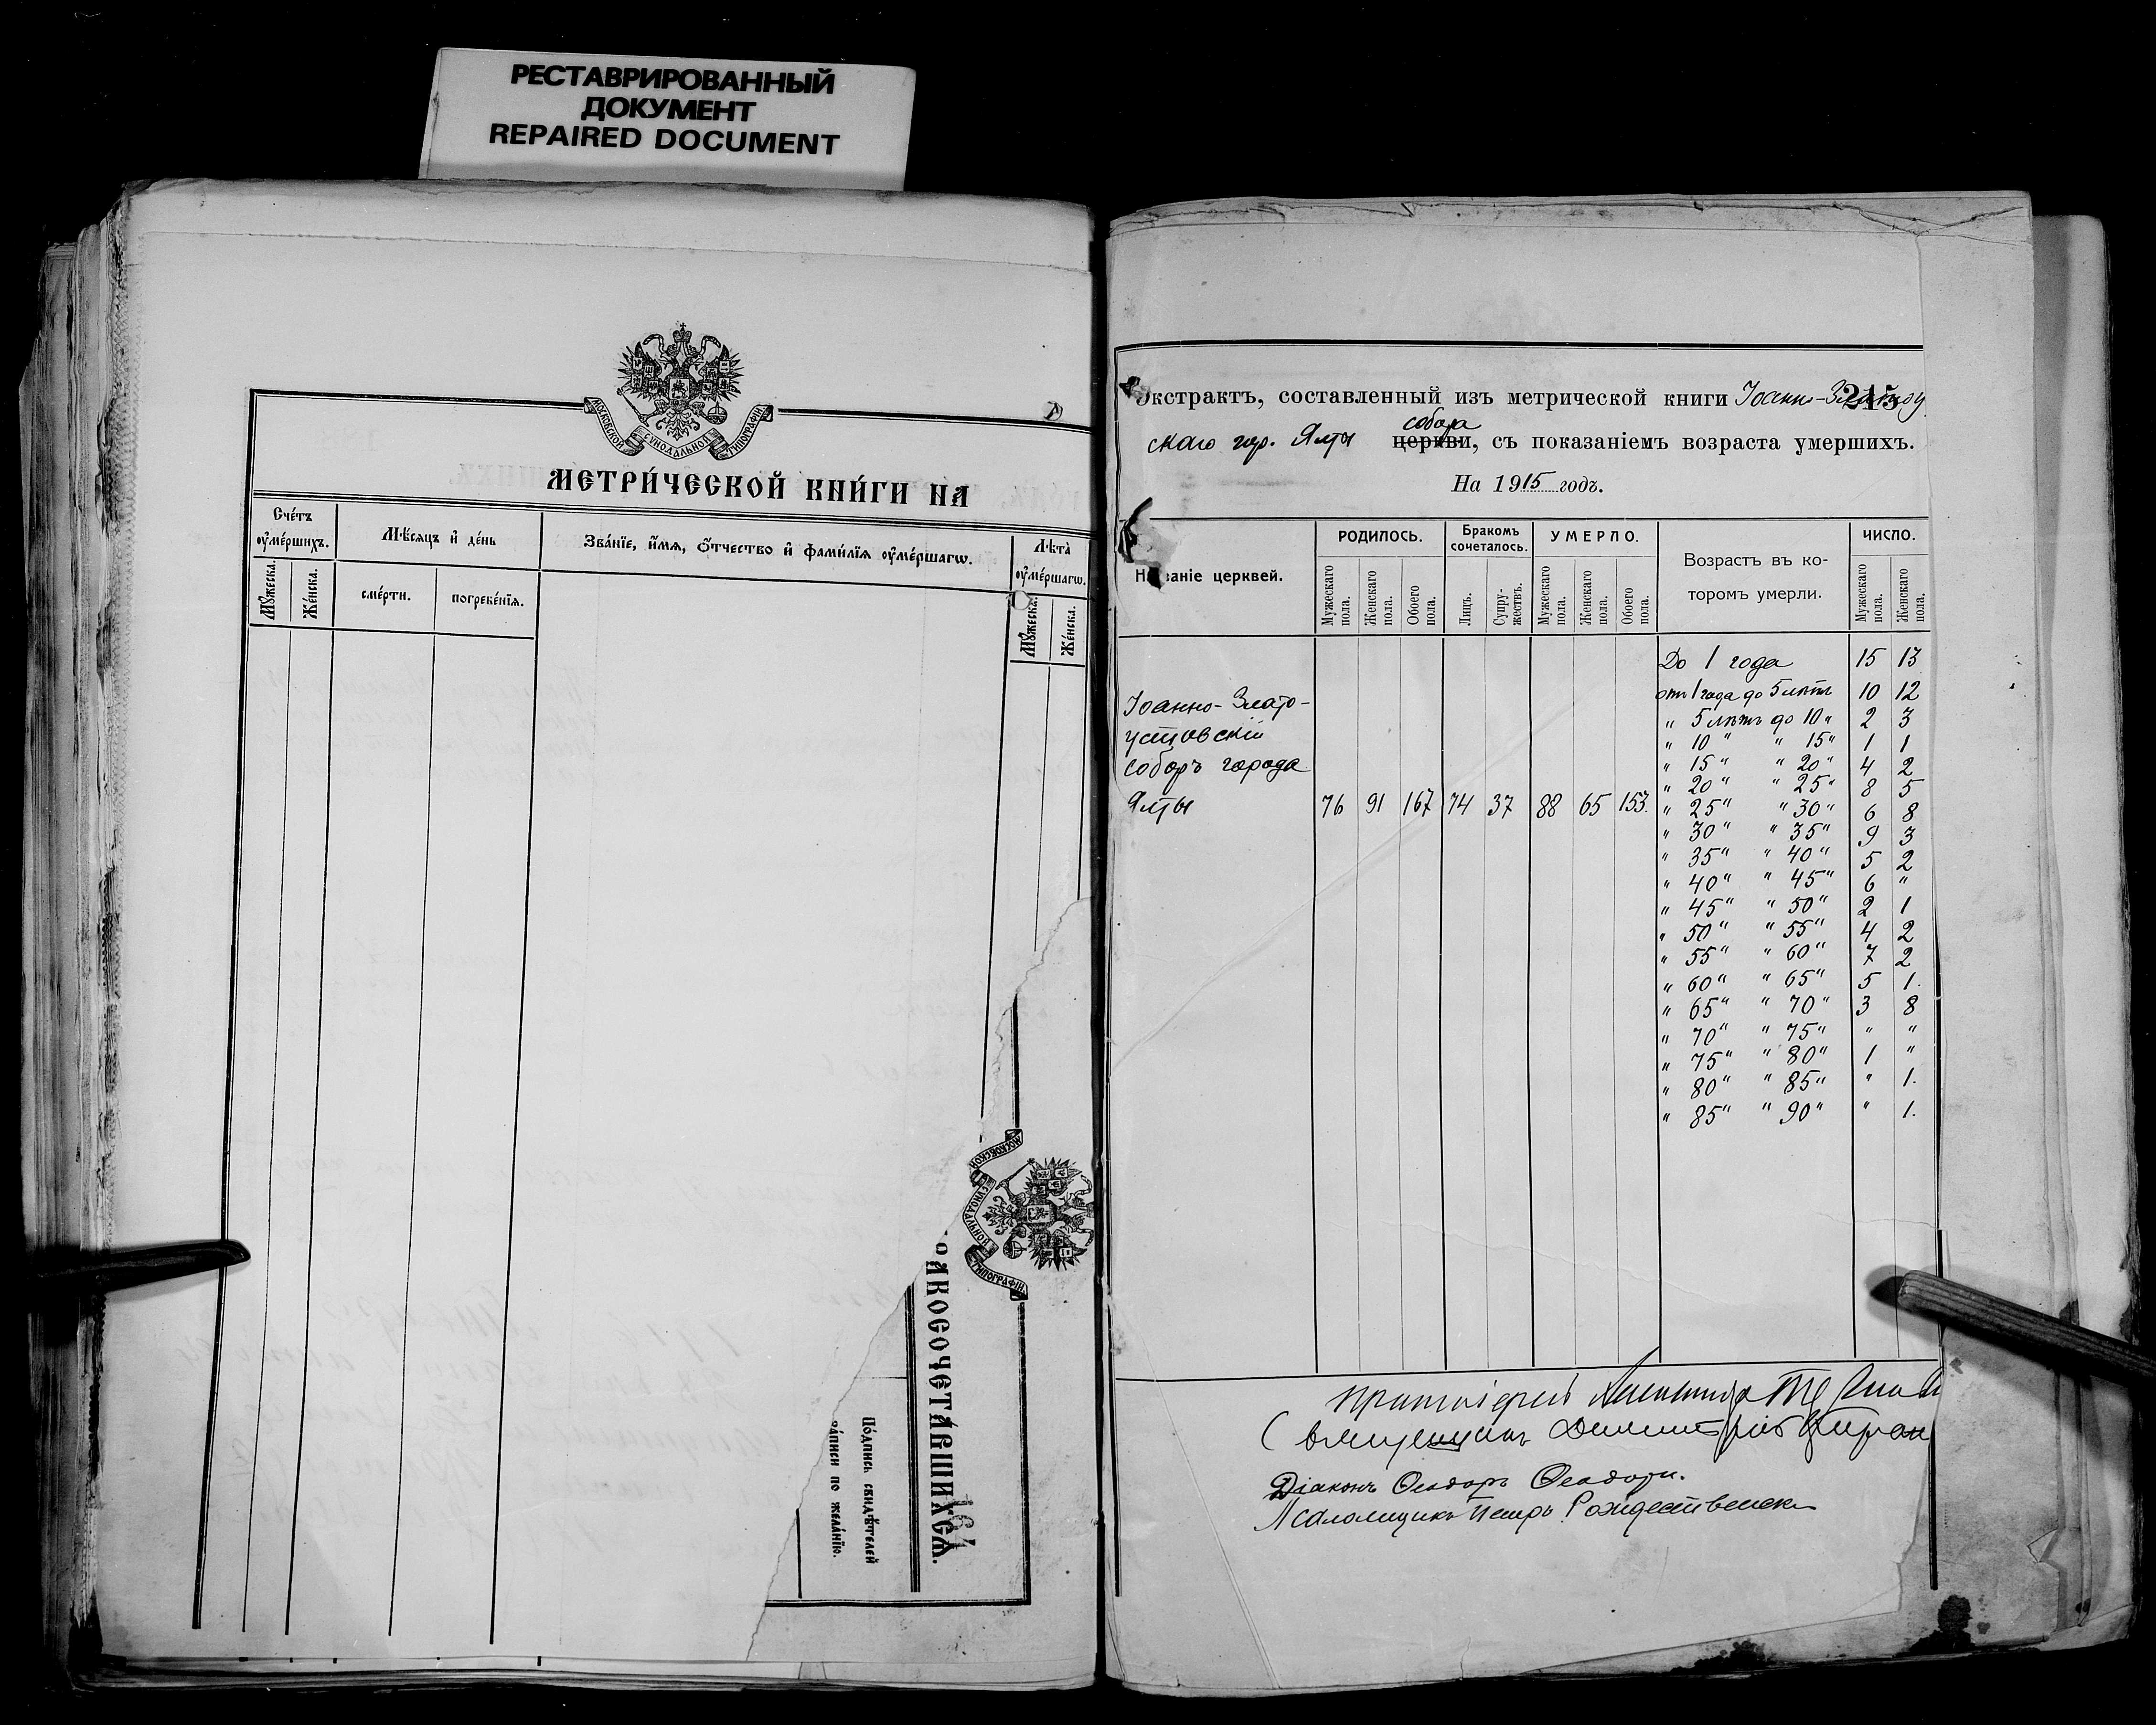 РЕСТАВРИРОВАННЫЙ
ДОКУМЕНТ
REPAIRED DOCUMENT
МОСКОВСКОЙ СѴНОДАЛЬНОЙ ТИПОГРАФІИ
МЕТРИ́ЧЕСКОЙ КНИ́ГИ НА
Сче́тъ ᲂу҆ме́ршихъ.
Мѣ́сяцъ и҆ де́нь
Зва́нїе, и҆́мѧ, ѻ҆́тчество и҆ фами́лїѧ ᲂу҆ме́ршагѡ.
Лѣта̀ ᲂу҆ме́ршагѡ.
Мꙋ́жеска.
Же́нска.
сме́рти.
погребе́нїѧ.
Мꙋ́жеска.
Же́нска.
МОСКОВСКОЙ СѴНОДАЛЬНОЙ ТИПОГРАФІИ
АКОСОЧЕТА́ВШИХСѦ.
По́дпись свидѣ́телей
за́писи по жела́нїю.
164
Экстрактъ, составленный изъ метрической книги Іоанно-Златоу
215
скаго гор. Ялты церкви, съ показаніемъ возраста умершихъ.
собора
На 1915 годъ.
Названіе церквей.
РОДИЛОСЬ.
Бракомъ сочеталось.
УМЕРЛО.
Возрастъ въ ко-
торомъ умерли.
ЧИСЛО.
Мужескаго пола.
Женскаго пола.
Обоего пола.
Лицъ.
Супру-жествъ.
Мужескаго пола.
Женскаго пола.
Обоего пола.
Мужескаго пола.
Женскаго пола.
Іоанно-Злато-
устовскій
соборъ города
Ялты 76 91 167 74 37 88 65 153.
До 1 года 15 13
отъ 1 года до 5 лѣтъ 10 12
" 5 лѣтъ до 10 " 2 3
" 10 " " 15 " 1 1
" 15 " " 20 " 4 2
" 20 " " 25 " 8 5
" 25 " " 30 " 6 8
" 30 " " 35 " 9 3
" 35 " " 40 " 5 2
" 40 " " 45 " 6 "
" 45 " " 50 " 2 1
" 50 " " 55 " 4 2
" 55 " " 60 " 7 2
" 60 " " 65 " 5 1.
" 65 " " 70 " 3 8
" 70 " " 75 " " "
" 75 " " 80 " 1 "
" 80 " " 85 " " 1.
" 85 " " 90 " " 1.
Протоіерей
Священникъ Димитрій
Діаконъ Ѳеодоръ Ѳеодори.
Псаломщикъ Петръ Рождественск